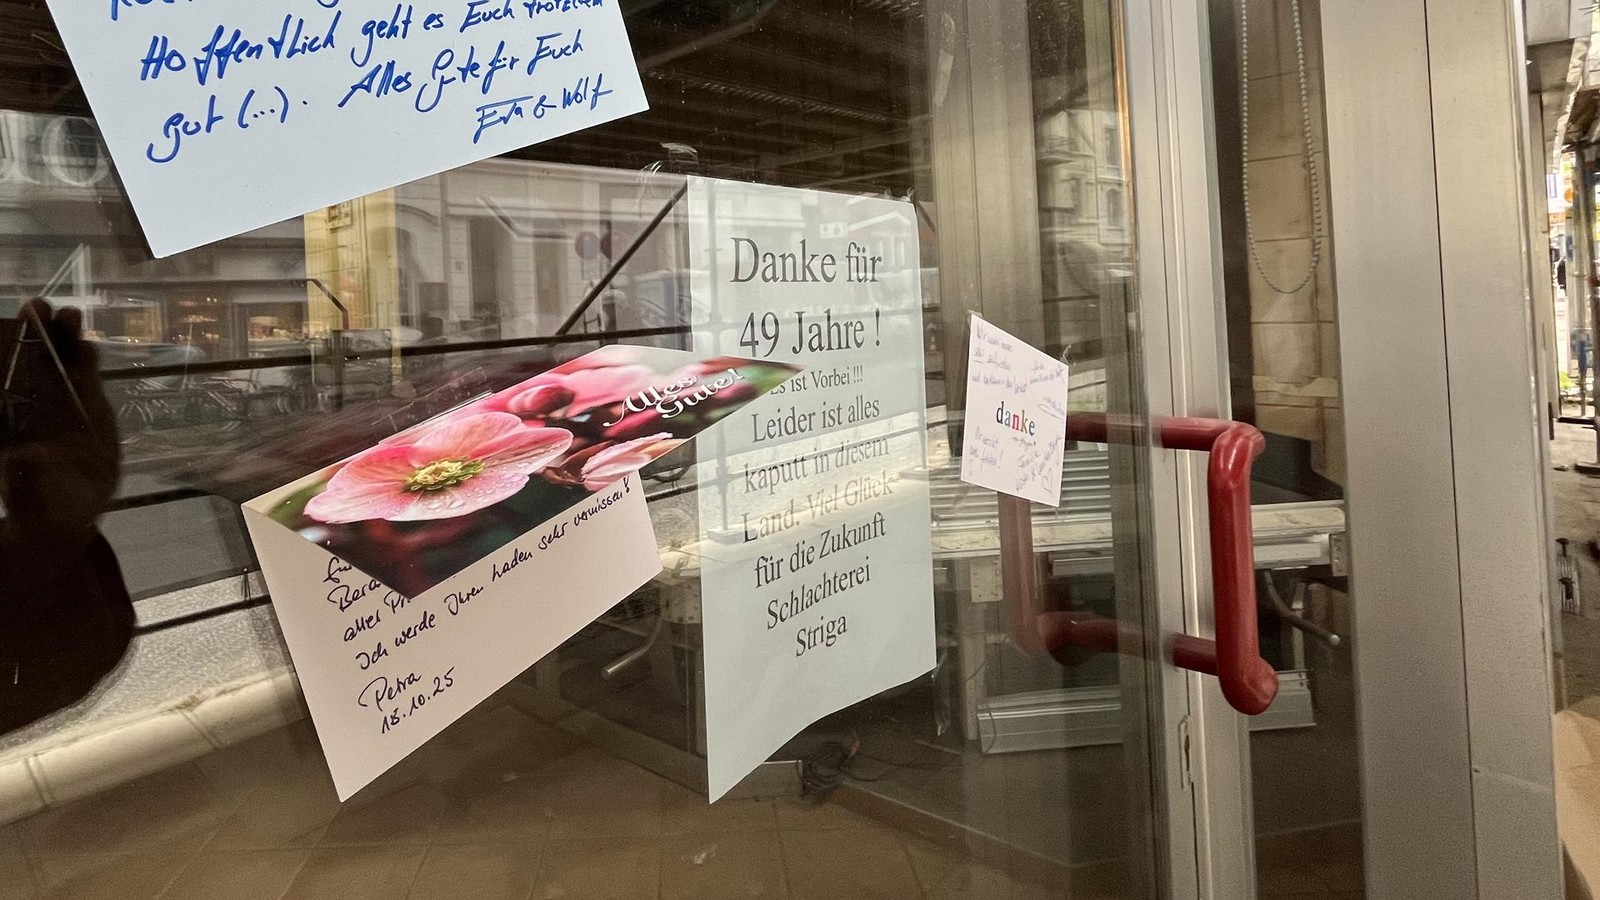 Hoffentlich geht es Euch trotzdem
gut (...). Alles Gute für Euch
Eva & Wolf
Danke für
49 Jahre !
Es ist Vorbei !!!
Leider ist alles
kaputt in diesem
Land. Viel Glück
für die Zukunft
Schlachterei
Striga
Alles
Gute!
aller
Ich werde Ihren Laden sehr vermissen!
Petra
18.10.25
danke